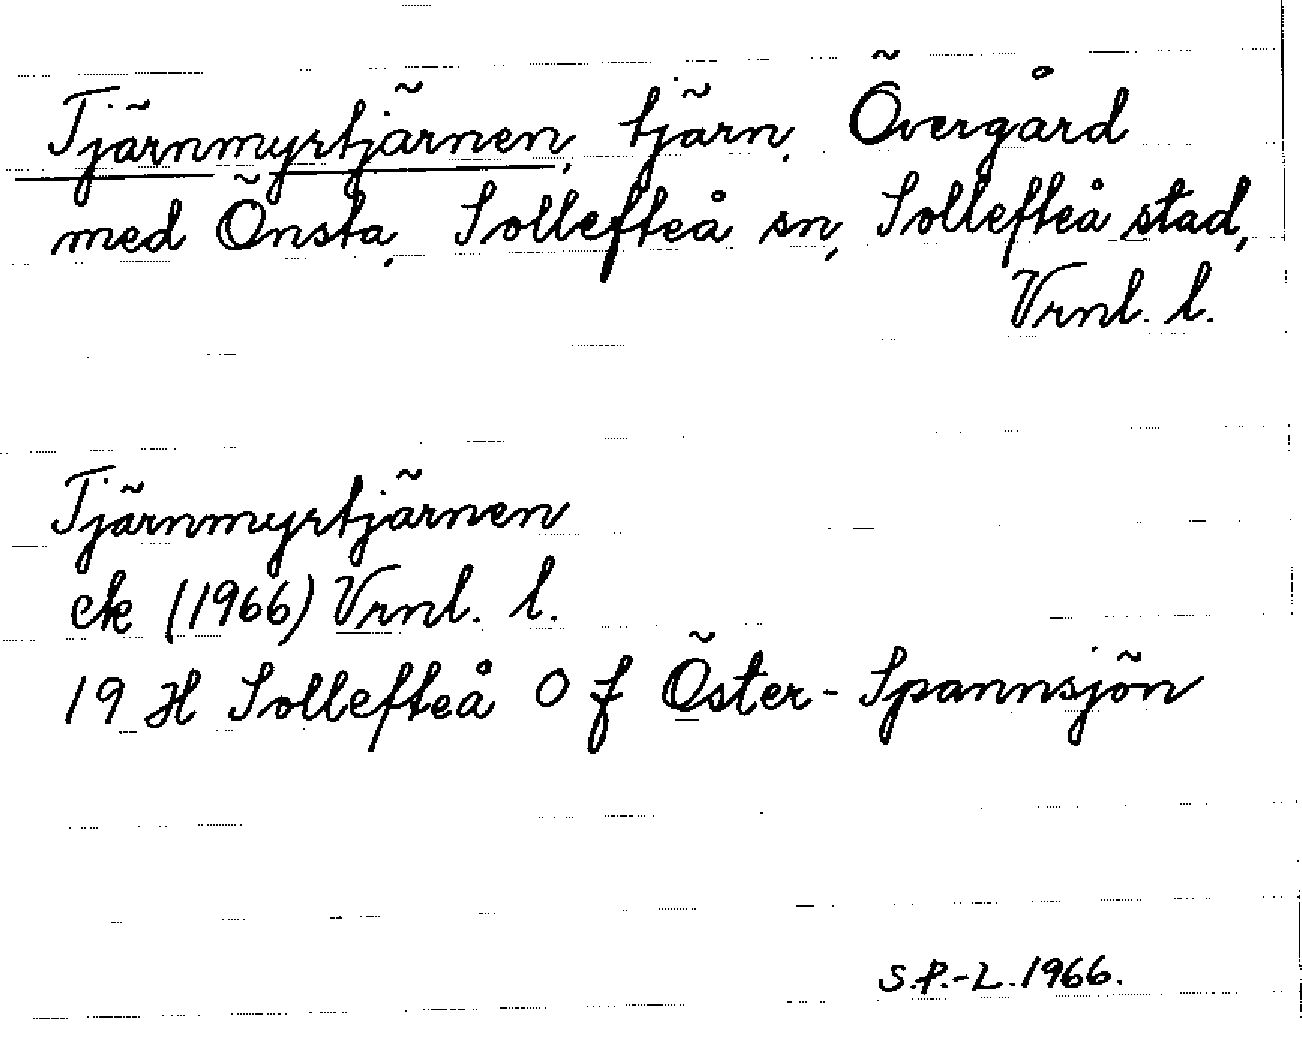 Tjärnmyrtjärnen, tjärn, Övergård
med Önsta, Sollefteå sn, Sollefteå stad,
Vrnl. l.
Tjärnmyrtjärnen
ek (1966) Vrnl. l.
19 H Sollefteå O f Öster-Spannsjön
S.P.-L. 1966.